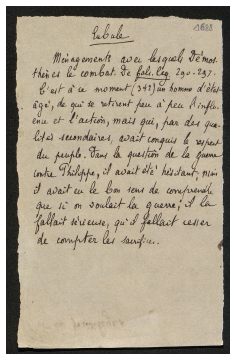 1628
Eubule
Ménagements avec lesquels Démos-
thènes le combat. De fals. leg. 290-297.
C'est à ce moment (342) un homme d'état
âgé, de qui se retirent peu à peu l'influ-
ence et l'action, mais qui, par des qua-
lités secondaires, avait conquis le respect
du peuple. Dans la question de la guerre
contre Philippe, il avait été hésitant; mais
il avait eu le bon sens de comprendre
que si on voulait la guerre, il la
fallait sérieuse, qu'il fallait cesser
de compter les